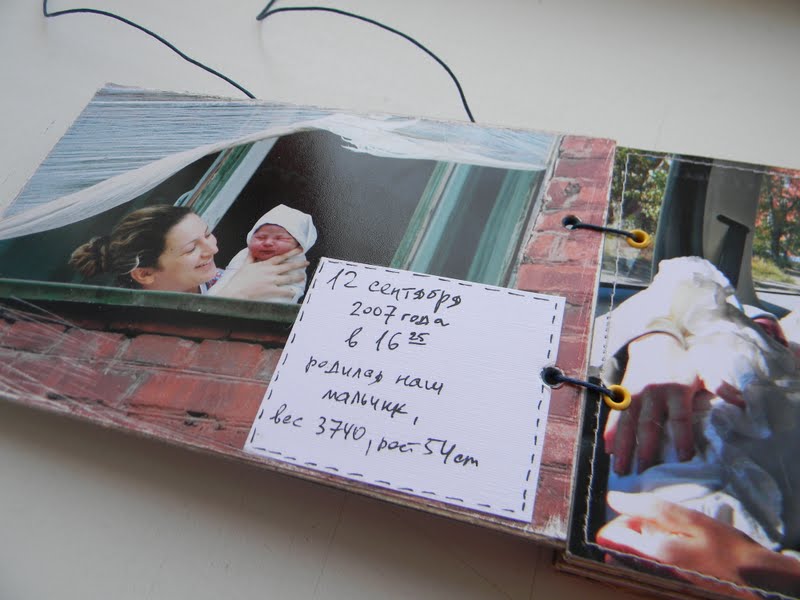 12 сентября
2007 года
в 16 25
родился наш
мальчик,
вес 3740, рост 54 cm